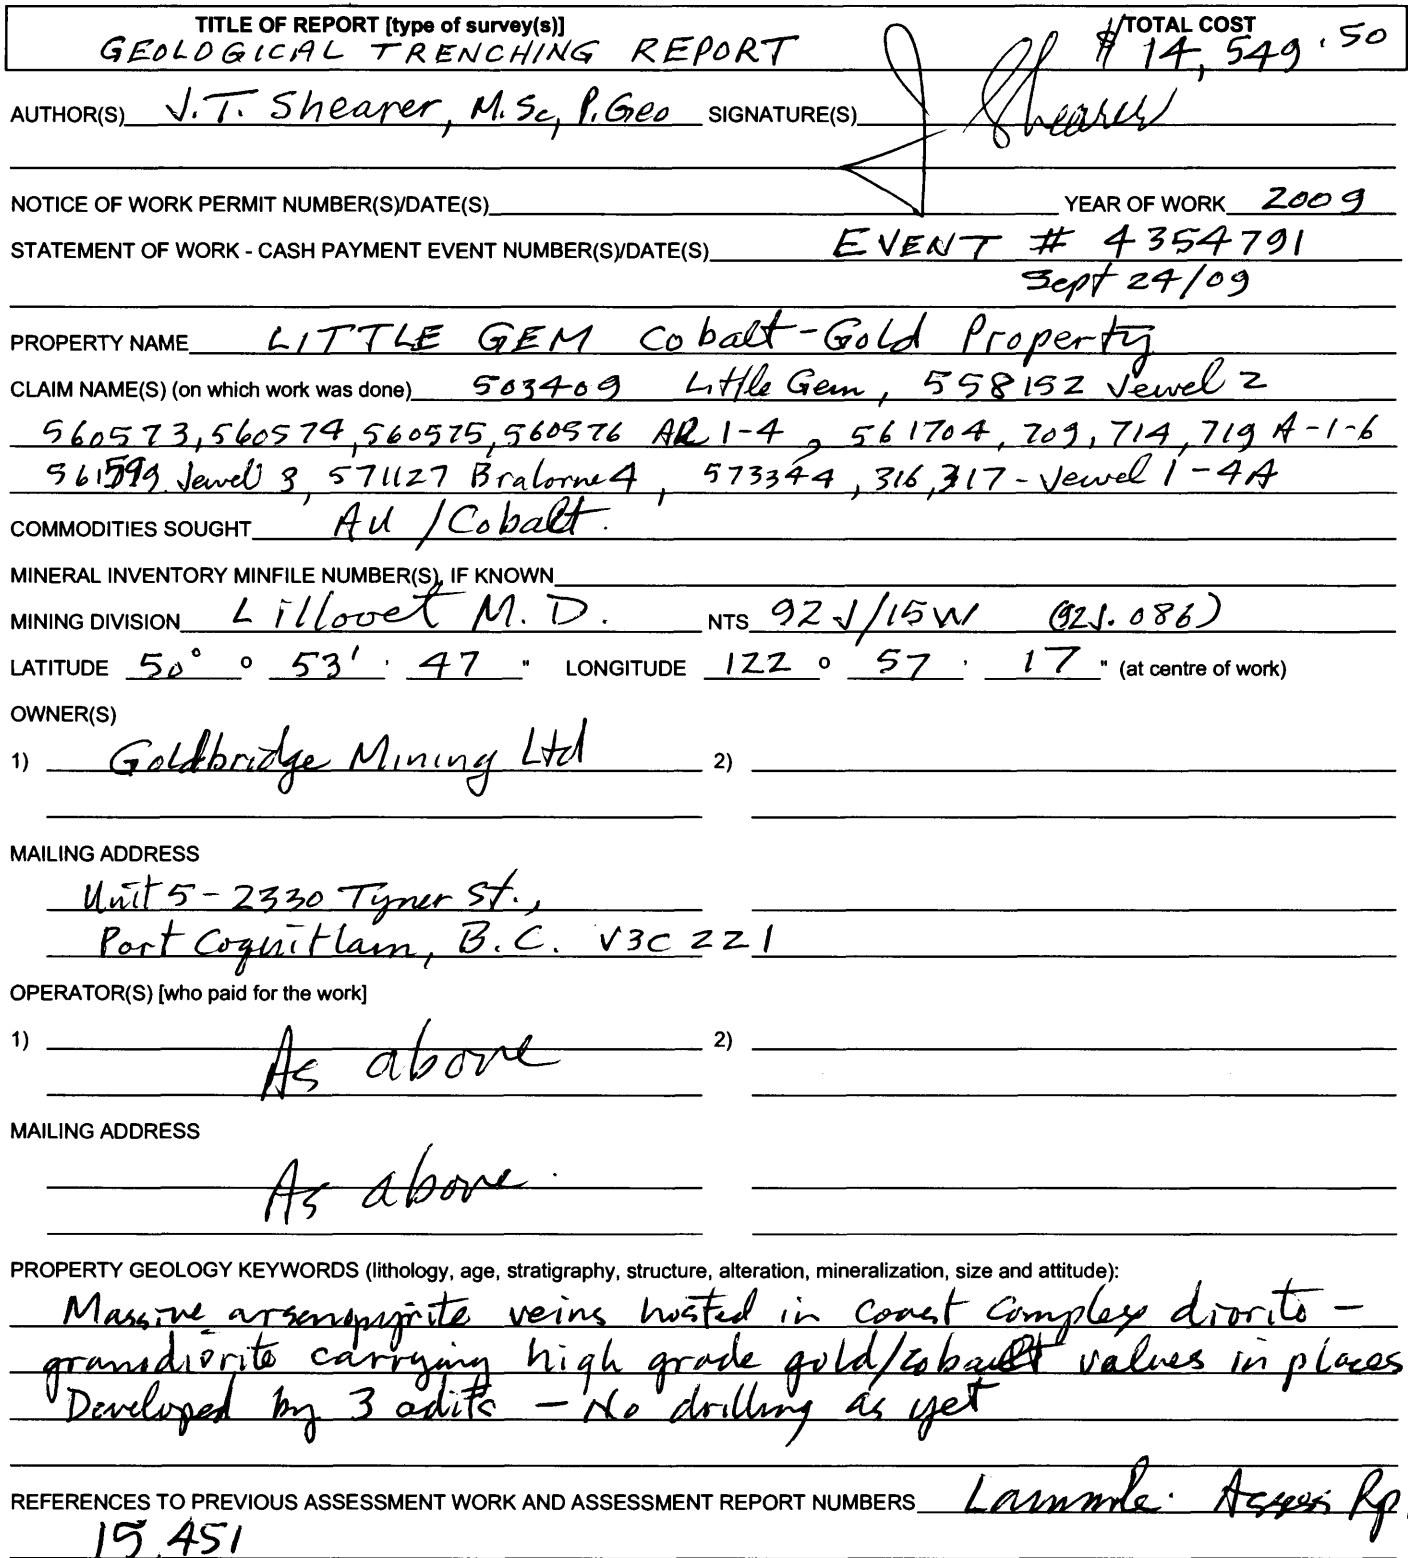 TITLE OF REPORT [type of survey(s)] TOTAL COST
GEOLOGICAL TRENCHING REPORT $ 14,549.50
AUTHOR(S) J.T. Shearer, M.Sc, P.Geo SIGNATURE(S) J Shearer
NOTICE OF WORK PERMIT NUMBER(S)/DATE(S) YEAR OF WORK 2009
STATEMENT OF WORK - CASH PAYMENT EVENT NUMBER(S)/DATE(S) EVENT # 4354791
Sept 24/09
PROPERTY NAME LITTLE GEM Cobalt-Gold Property
CLAIM NAME(S) (on which work was done) 503409 Little Gem, 558152 Jewel 2
560573, 560574, 560575, 560576 AR 1-4, 561704, 709, 714, 719 A-1-6
561599 Jewel 3, 571127 Bralorne 4, 573344, 316, 317 - Jewel 1-4A
COMMODITIES SOUGHT Au / Cobalt.
MINERAL INVENTORY MINFILE NUMBER(S), IF KNOWN
MINING DIVISION Lillooet M.D. NTS 92J/15W (92J.086)
LATITUDE 50° o 53' ' 47 " LONGITUDE 122 o 57 ' 17 " (at centre of work)
OWNER(S)
1) Goldbridge Mining Ltd 2)
MAILING ADDRESS
Unit 5 - 2330 Tyner St.,
Port Coquitlam, B.C. V3C 2Z1
OPERATOR(S) [who paid for the work]
1) As above 2)
MAILING ADDRESS
As above.
PROPERTY GEOLOGY KEYWORDS (lithology, age, stratigraphy, structure, alteration, mineralization, size and attitude):
Massive arsenopyrite veins hosted in Coast Complex diorite -
granodiorite carrying high grade gold/cobalt values in places
Developed by 3 adits - No drilling as yet
REFERENCES TO PREVIOUS ASSESSMENT WORK AND ASSESSMENT REPORT NUMBERS Lammle. Asses Rp.
15,451